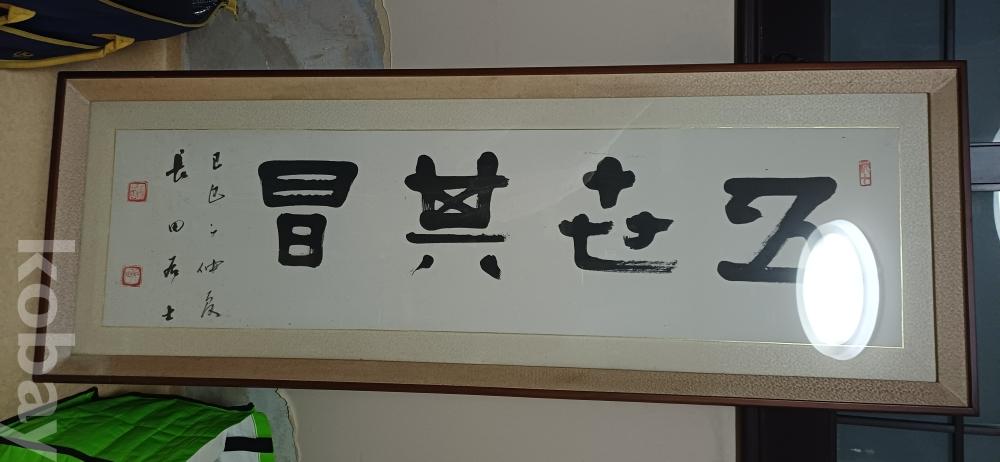 五世其昌
己巳之仲夏
長田居士
kobay